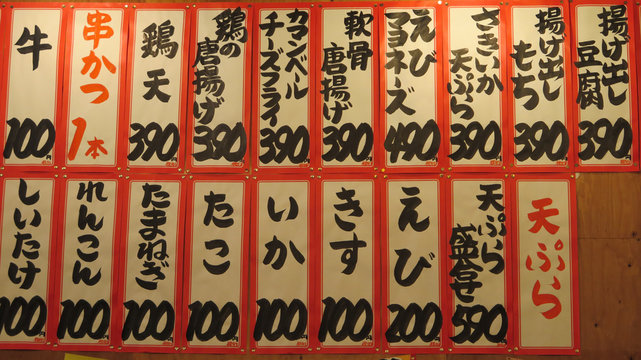 揚げ出し豆腐 390円
揚げ出しもち 390円
さきいか天ぷら 390円
えびマヨネーズ 490円
軟骨唐揚げ 390円
カマンベールチーズフライ 390円
鶏の唐揚げ 390円
鶏天 390円
串かつ 1本
牛 100円
天ぷら
天ぷら盛合せ 590円
えび 200円
きす 100円
いか 100円
たこ 100円
たまねぎ 100円
れんこん 100円
しいたけ 100円